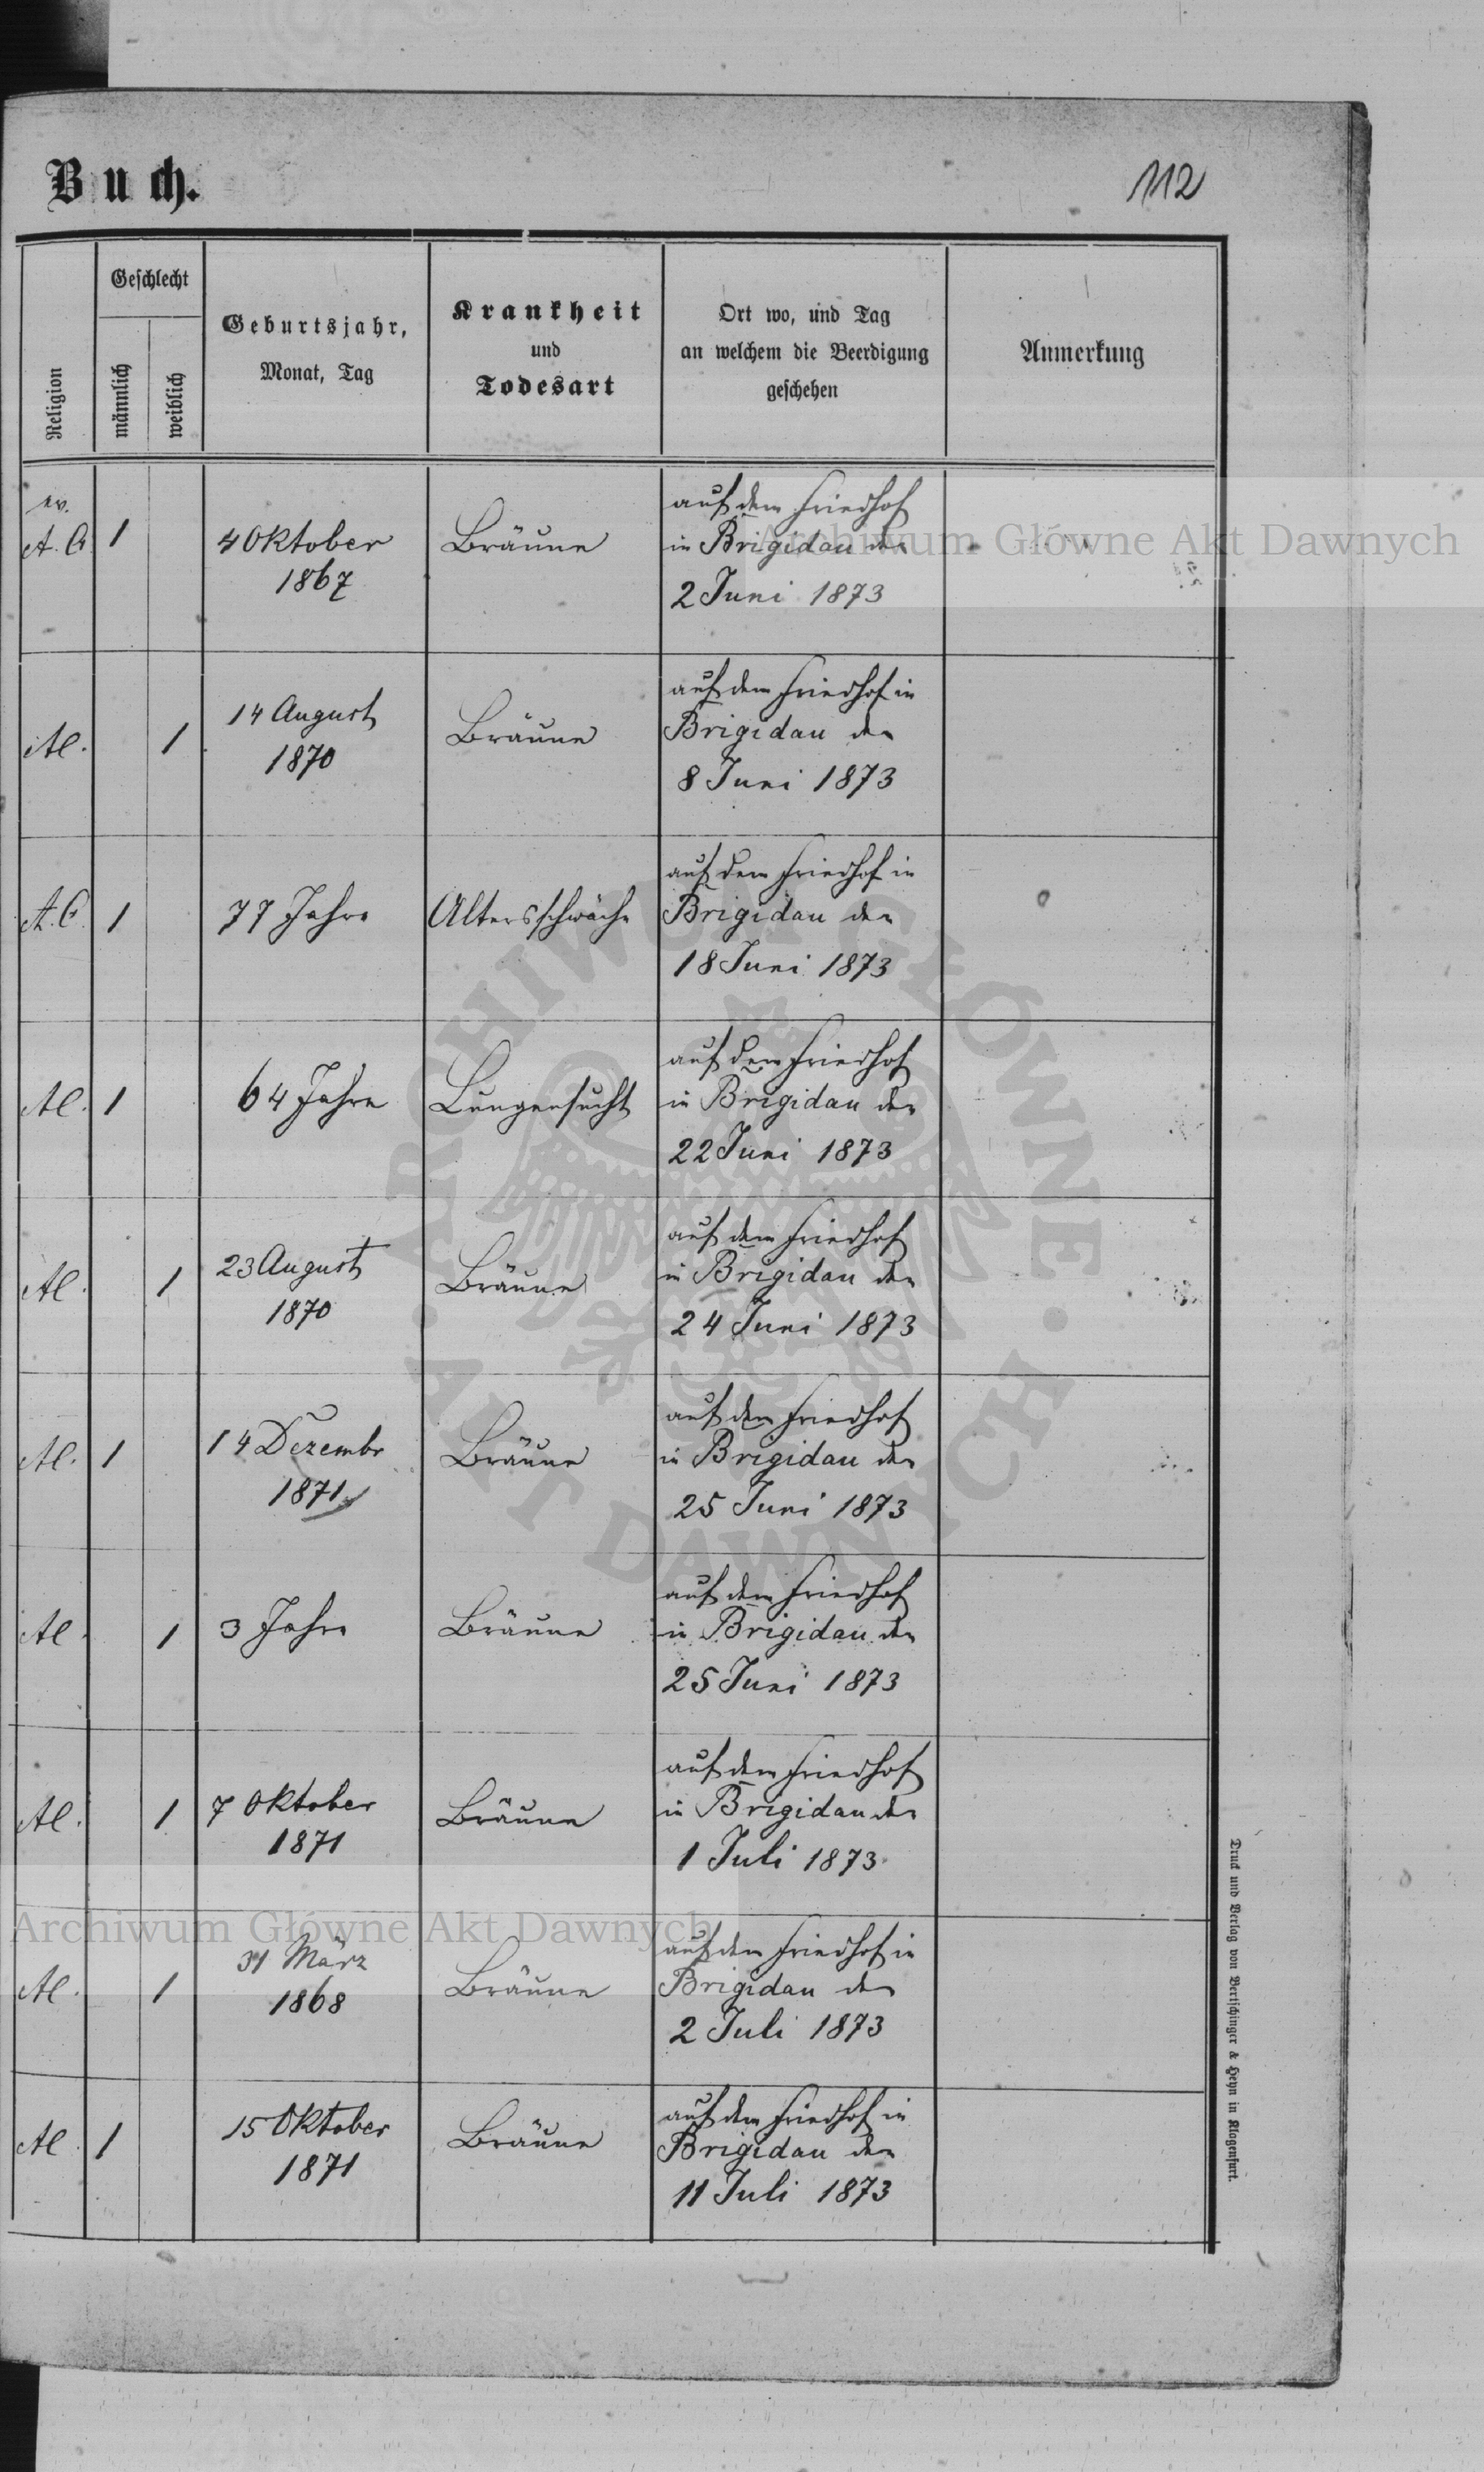 Buch.
112
Religion
Geschlecht
männlich
weiblich
Geburtsjahr,
Monat, Tag
Krankheit
und
Todesart
Ort wo, und Tag
an welchem die Beerdigung
geschehen
Anmerkung
ev.
A. C.
1
4 Oktober
1867
Bräune
auf dem Friedhof
in Brigidau den
2 Juni 1873
AC.
1
14 August
1870
Bräune
auf dem Friedhof in
Brigidau den
8 Juni 1873
A.C.
1
77 Jahre
Altersschwäche
auf dem Friedhof in
Brigidau den
18 Juni 1873
AC.
1
64 Jahre
Lungensucht
auf dem Friedhof
in Brigidau den
22 Juni 1873
AC.
1
23 August
1870
Bräune
auf dem Friedhof
in Brigidau den
24 Juni 1873
AC.
1
14 Dezembr
1871
Bräune
auf dem Friedhof
in Brigidau den
25 Juni 1873
AC.
1
3 Jahre
Bräune
auf dem Friedhof
in Brigidau den
25 Juni 1873
AC.
1
7 Oktober
1871
Bräune
auf dem Friedhof
in Brigidau den
1 Juli 1873
AC.
1
31 März
1868
Bräune
auf dem Friedhof in
Brigidau den
2 Juli 1873
AC.
1
15 Oktober
1871
Bräune
auf dem Friedhof in
Brigidau den
11 Juli 1873
Druck und Verlag von Bertschinger & Heyn in Klagenfurt.
Archiwum Główne Akt Dawnych
Archiwum Główne Akt Dawnych
ARCHIWUM GŁÓWNE · AKT DAWNYCH ·